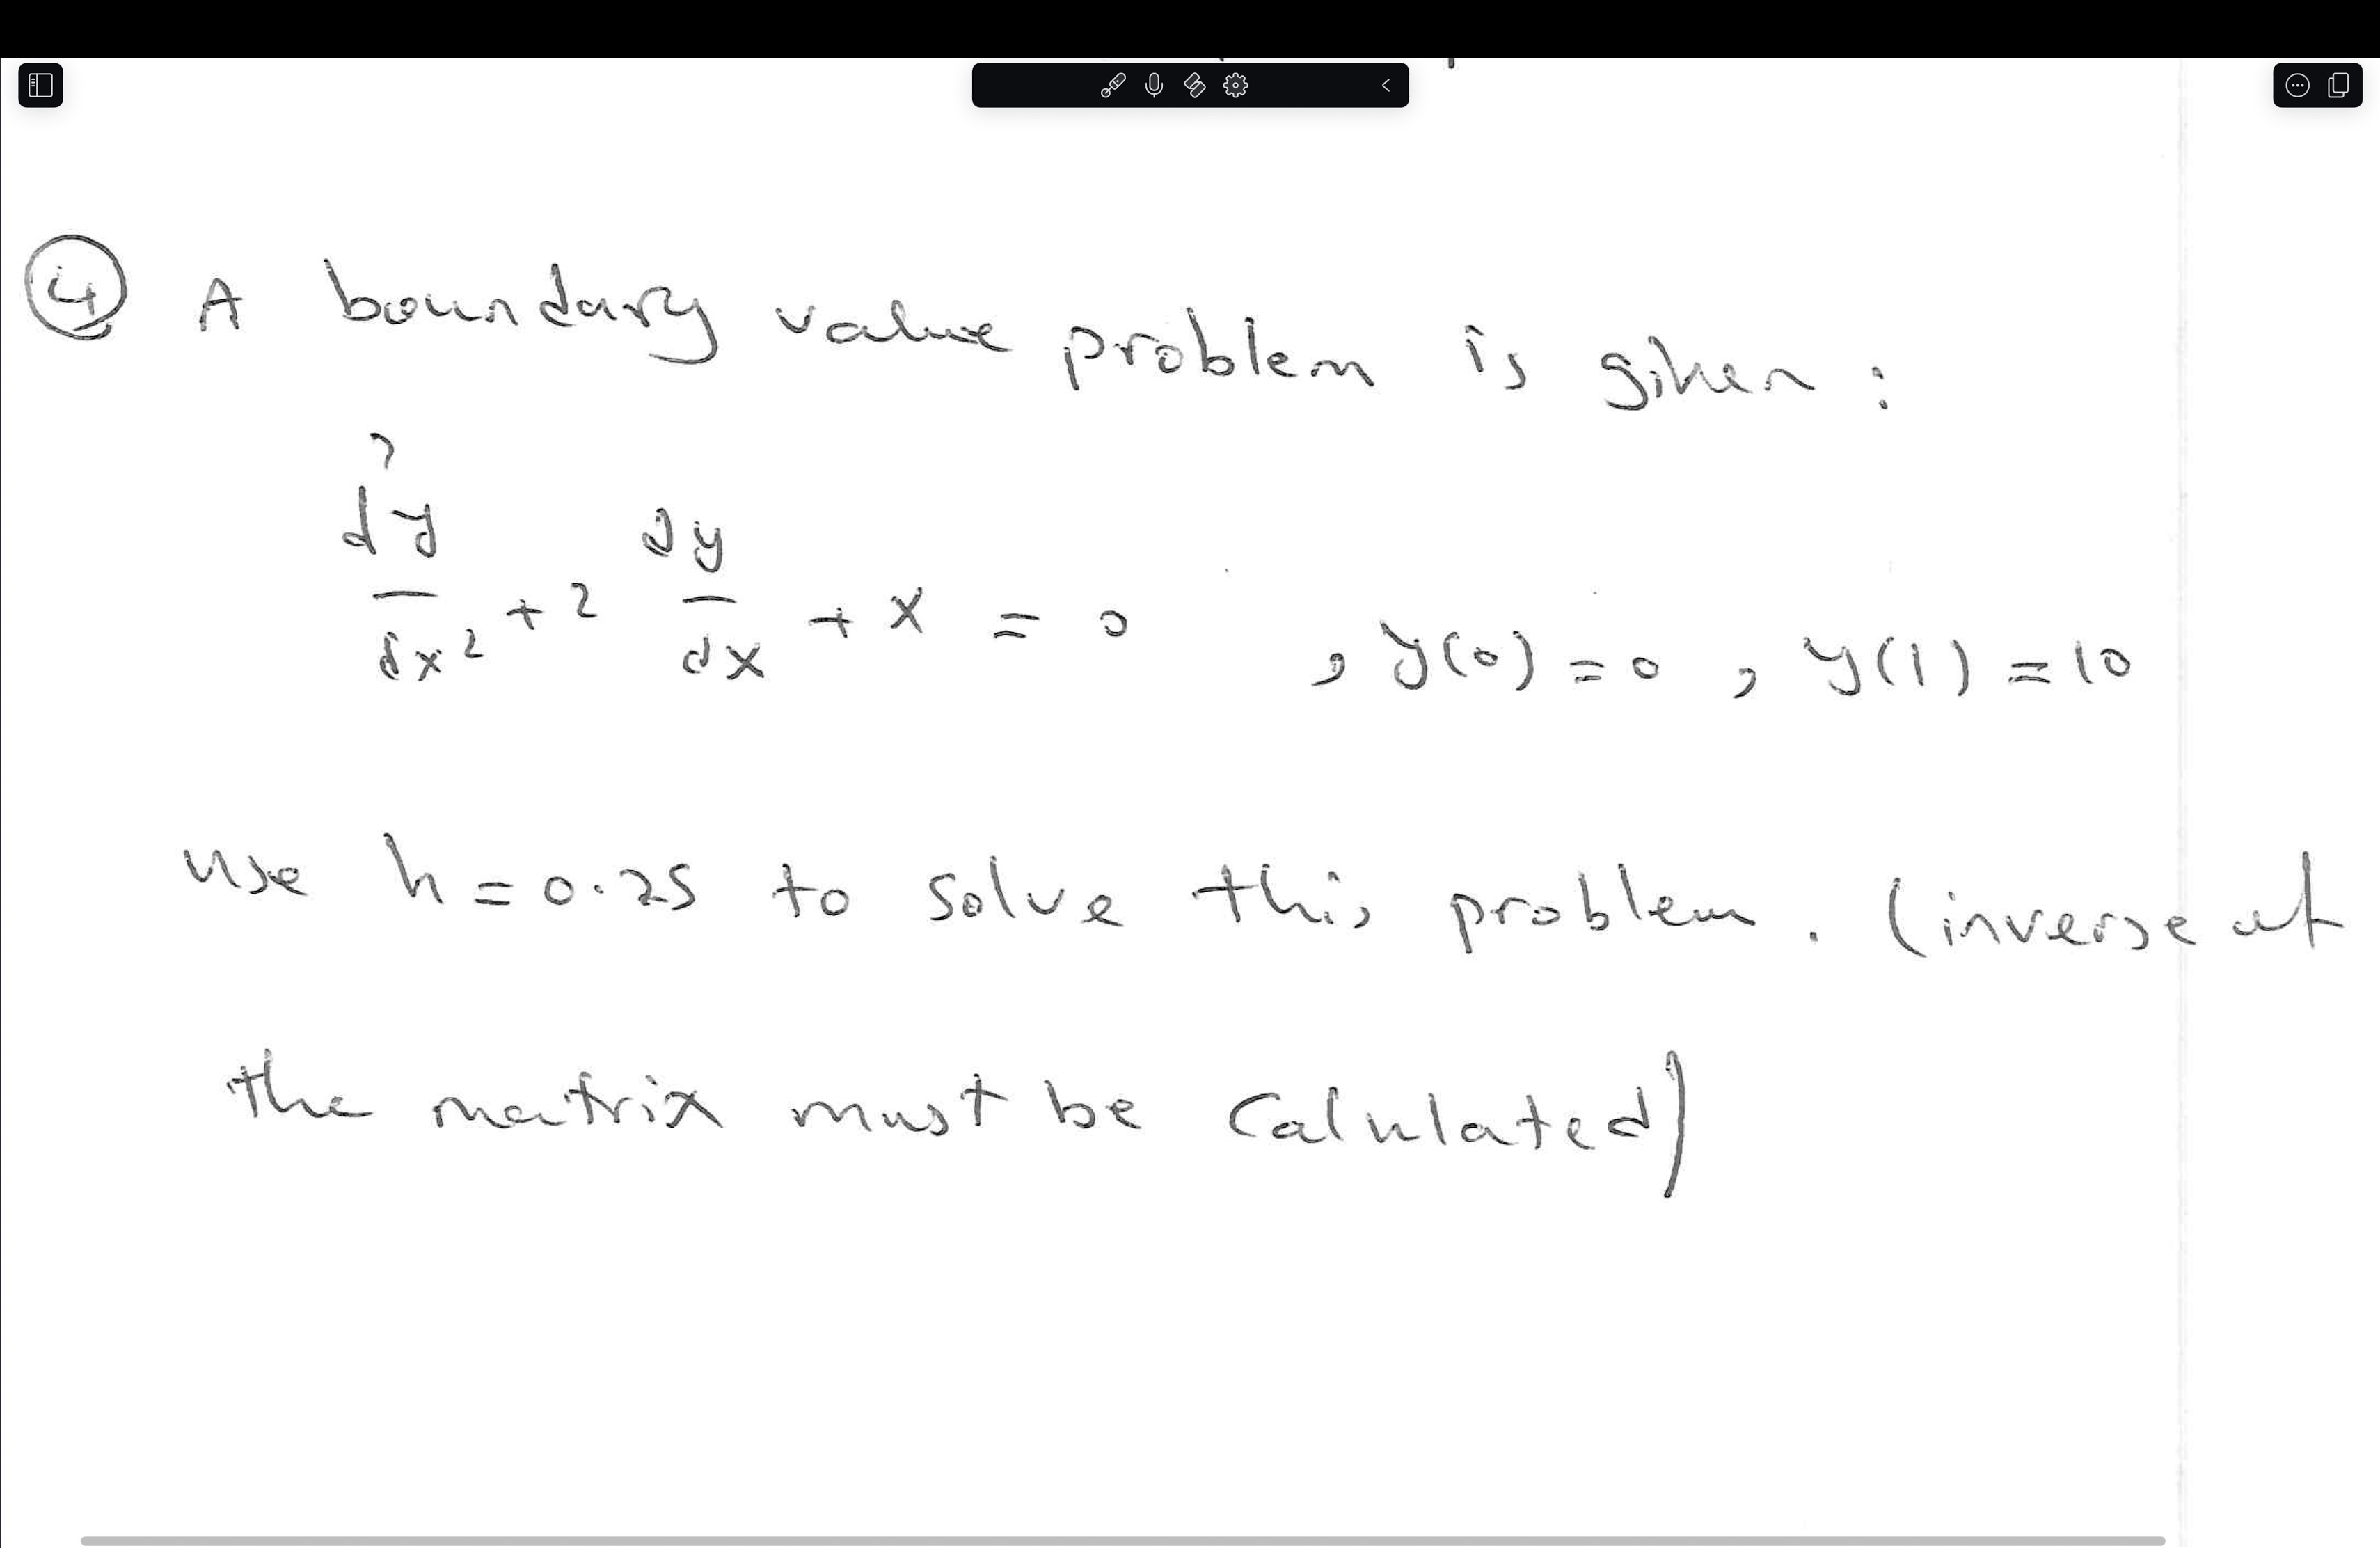 ④ A boundary value problem is given:
d²y/dx² + 2 dy/dx + x = 0 , y(0) = 0 , y(1) = 10
use h = 0.25 to solve this problem. (inverse of
the matrix must be calculated)